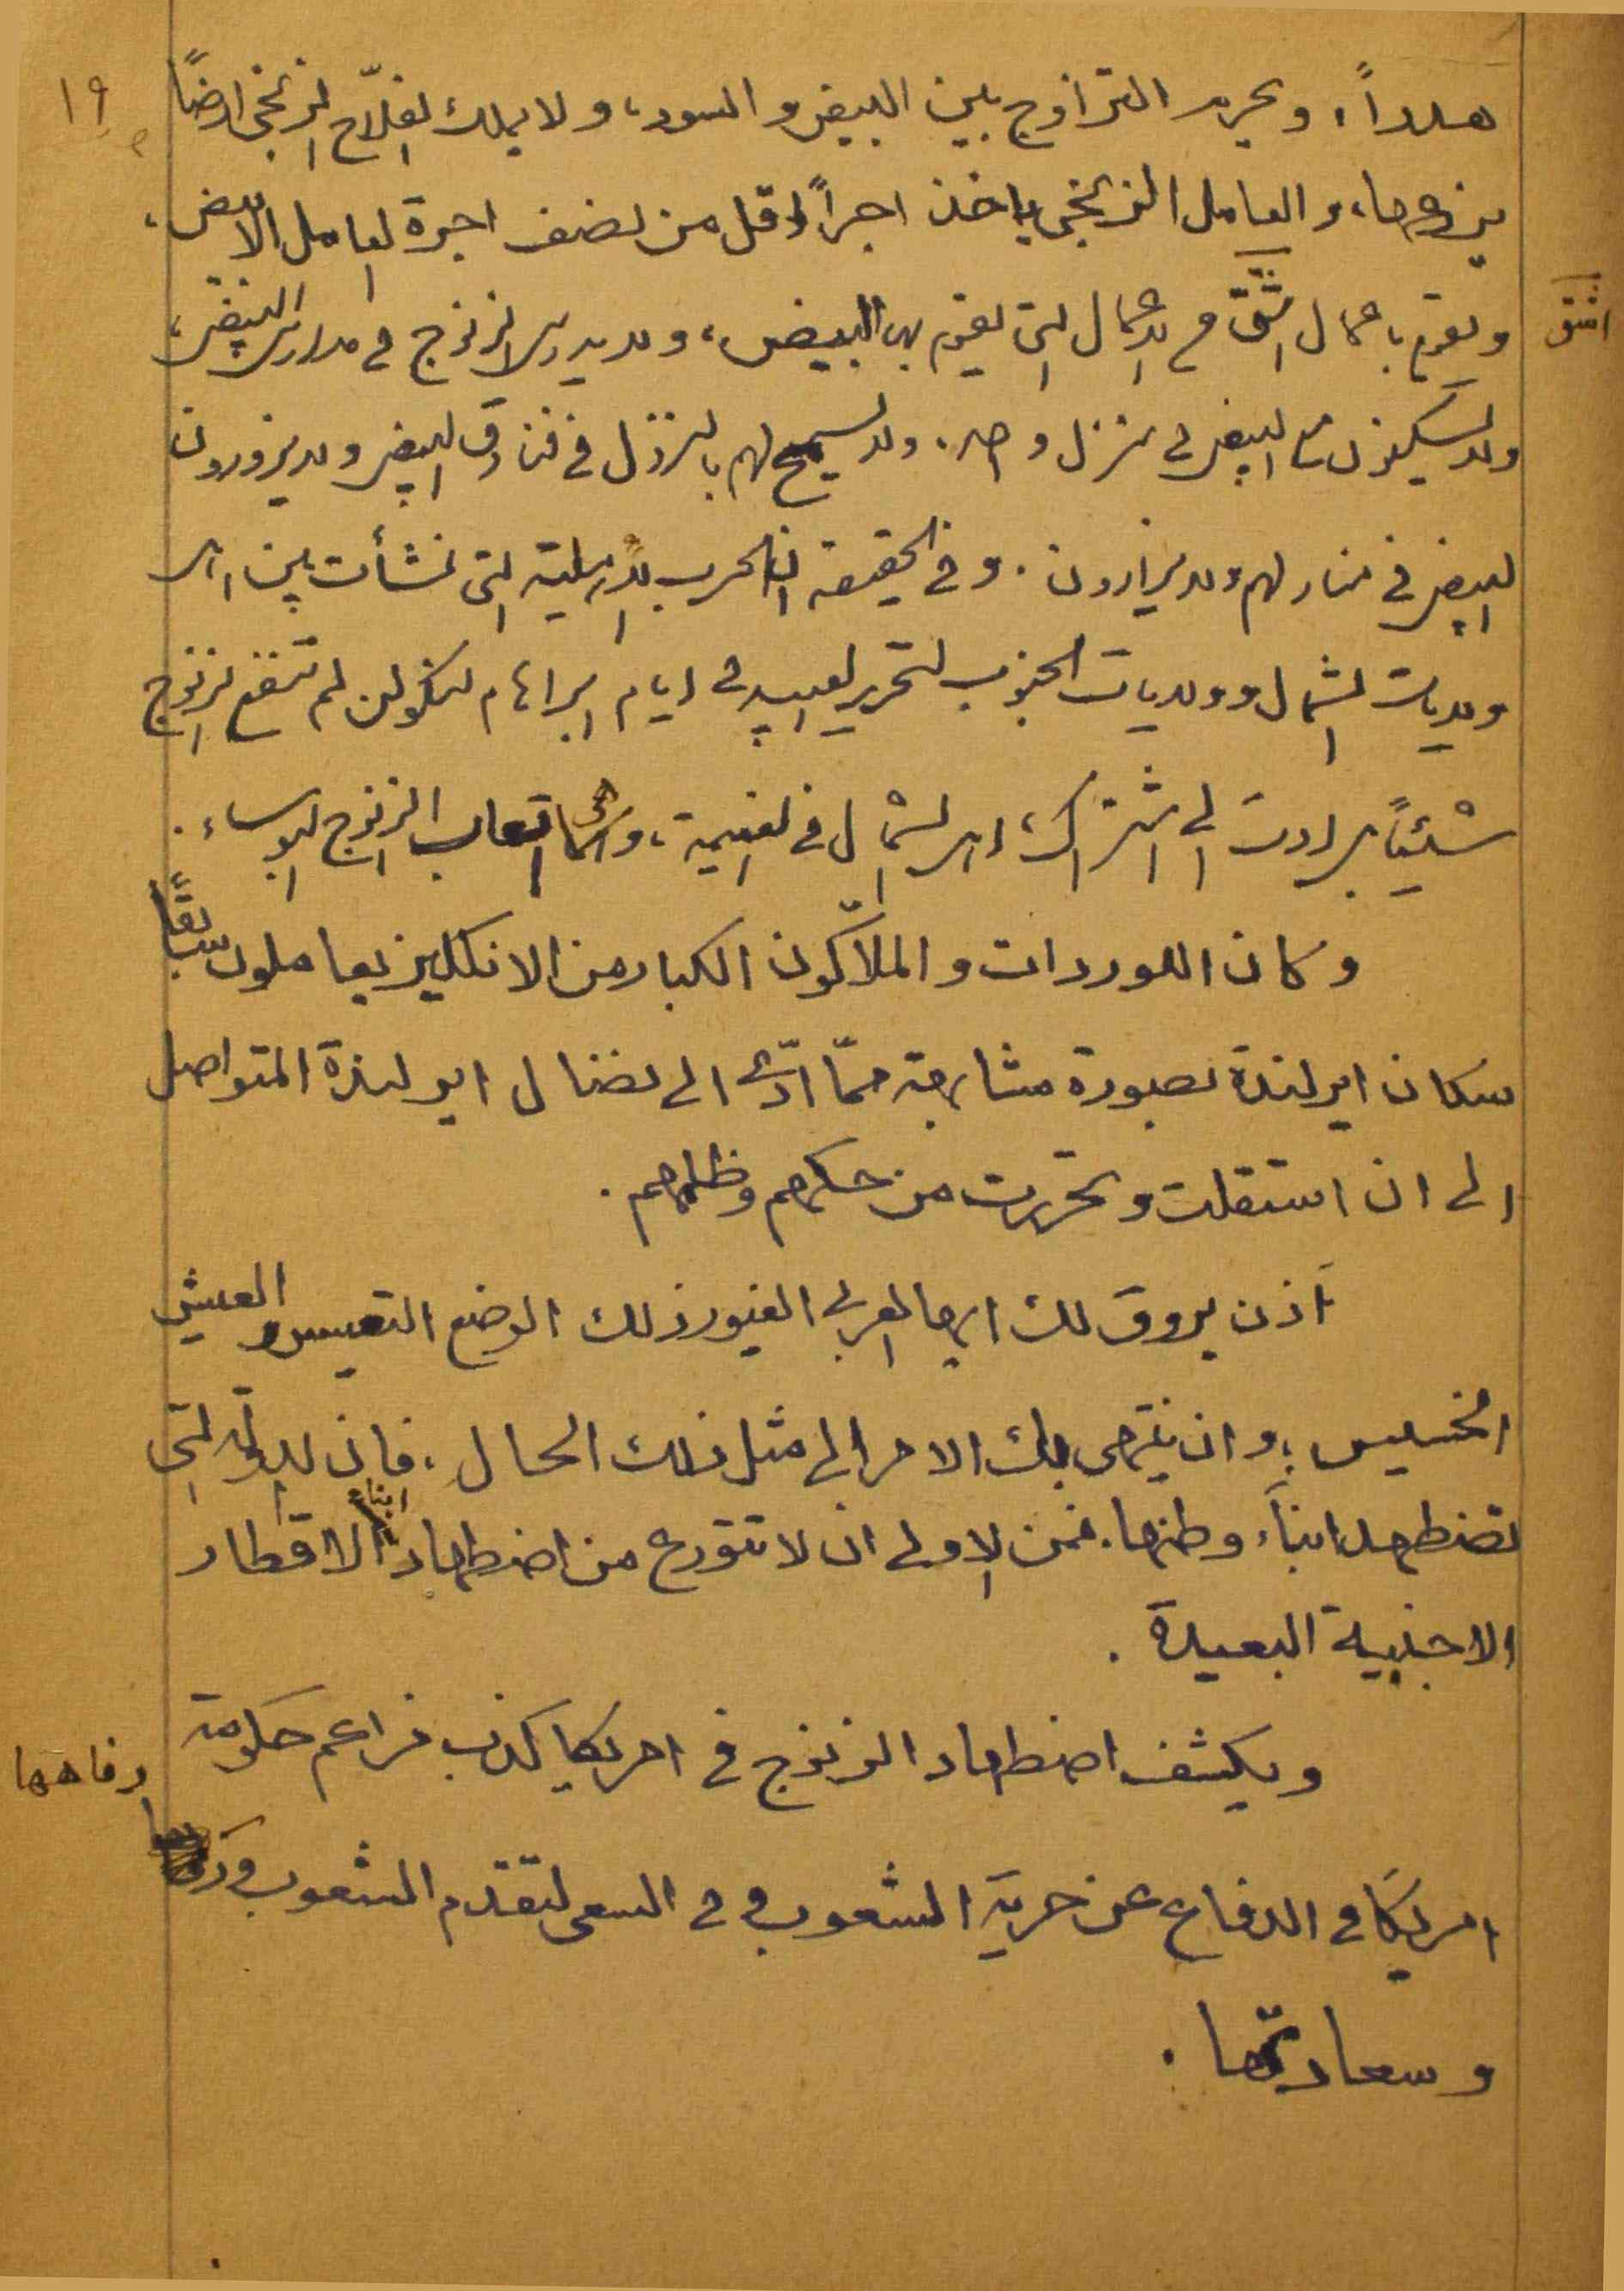 ١٩
هدراً، ويحرم التزاوج بين البيض والسود، ولا يملك الفلّاح الزنجي ارضاً
يزرعها، والعامل الزنجي ياخذ اجراً اقل من نصف اجرة العامل الابيض،
ويقوم باعمال اشقّ من الاعمال التي يقوم بها البيض، ولا يدرس الزنوج في مدارس البيض،
اشق
ولا يسكنون مع البيض في منزل واحد، ولا يسمح لهم بالنزول في فنادق البيض ولا يزورون
البيض في منازلهم ولا يزارون. وفي الحقيقة ان الحرب الاهلية التي نشأت بين اهل
ولايات الشمال وولايات الجنوب لتحرير العبيد في ايام ابراهام لنكولن لم تنفع الزنوج
شيئاً بل ادت الى اشتراك اهل الشمال في الغنيمة، وفي اتعاب الزنوج البؤساء.
وكان اللوردات والملاّكون الكبار من الانكليز يعاملون سابقاً
سكان ايرلندة بصورة مشابهة ممّا ادّى الى نضال ايرلندة المتواصل
الى ان استقلت وتحررت من حكمهم وظلمهم.
أذن يروق لك ايها العربي الغيور ذلك الوضع التعيس والعيش
الخسيس، وان ينتهي بك الامر الى مثل ذلك الحال، فان الدولة التي
تضطهد ابناء وطنها، فمن الاولى ان لا تتورع من اضطهاد ابناء الاقطار
الاجنبية البعيدة.
ويكشف اضطهاد الزنوج في امريكا كذب مزاعم حكومة
امريكا في الدفاع عن حرية الشعوب وفي السعي لتقدم الشعوب و
رفاهها
وسعادتها.